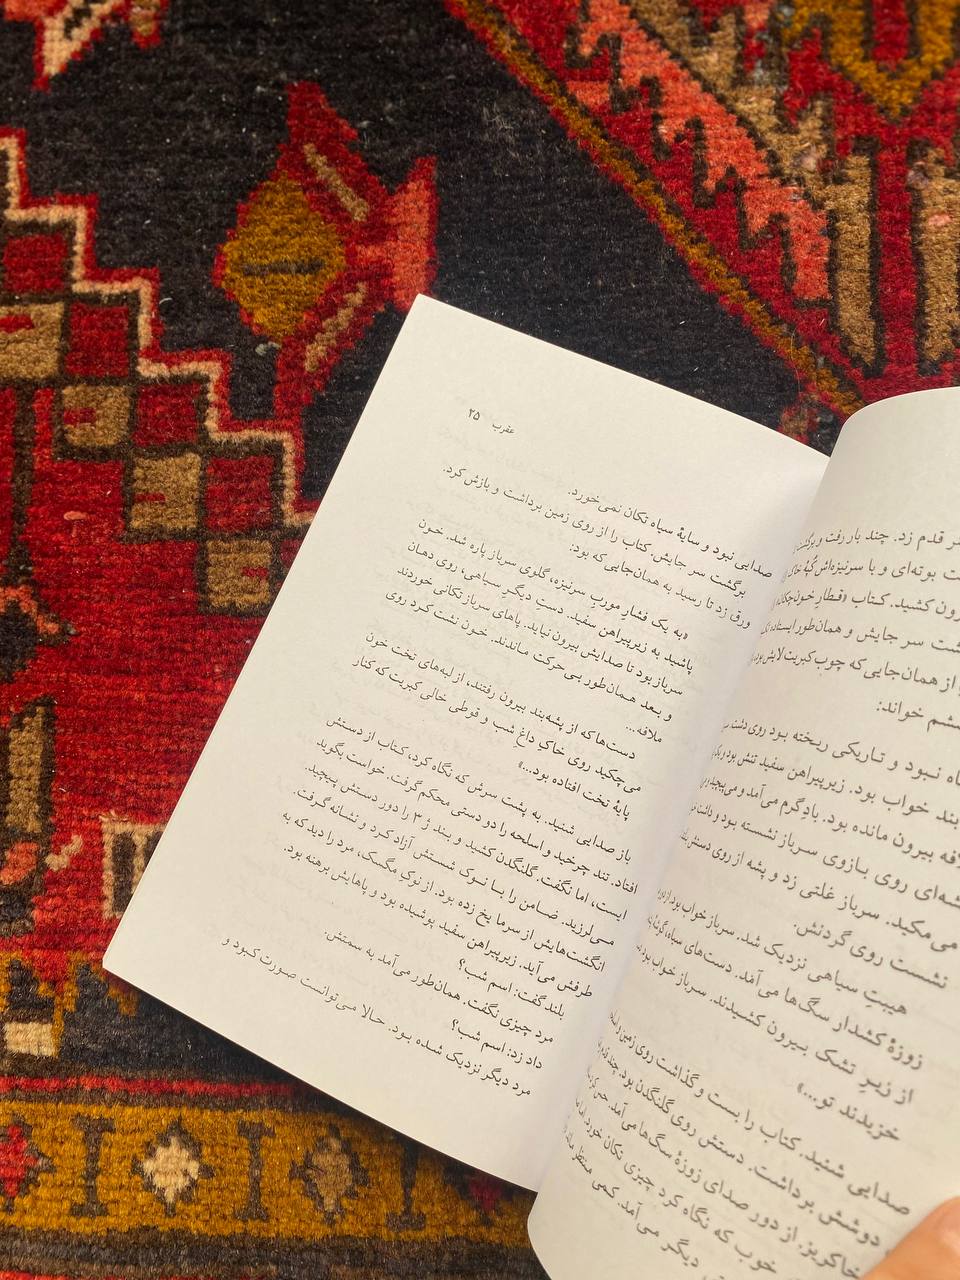 قدم زد. چند بار رفت و برگشت
بوته‌ای و با سرنیزه‌اش کپهٔ خاک
کشید. کتاب «قطارِ خون‌چکان
سر جایش و همان‌طور ایستاده
از همان‌جایی که چوب کبریت لایش بود
خواند:
نبود و تاریکی ریخته بود روی دشت
خواب بود. زیرپیراهن سفید تنش بود و
بیرون مانده بود. بادِ گرم می‌آمد و می‌پیچید
روی بازوی سرباز نشسته بود و داشت
می‌مکید. سرباز غلتی زد و پشه از روی دستش
نشست روی گردنش.
هیبتِ سیاهی نزدیک شد. سرباز خواب بود. از دور
زوزهٔ کشدار سگ‌ها می‌آمد. دست‌های سیاه،
از زیرِ تشک بیرون کشیدند. سرباز خواب بود
خزیدند تو...»
صدایی شنید. کتاب را بست و گذاشت روی زمین
دوشش برداشت. دستش روی گلنگدن بود.
خاکریز. از دور صدای زوزهٔ سگ‌ها می‌آمد.
خوب که نگاه کرد چیزی تکان خورد.
دیگر می‌آمد. کمی منتظر
عقرب ۲۵
صدایی نبود و سایهٔ سیاه تکان نمی‌خورد.
برگشت سر جایش. کتاب را از روی زمین برداشت و بازش کرد.
ورق زد تا رسید به همان‌جایی که بود:
«به یک فشارِ موربِ سرنیزه، گلوی سرباز پاره شد. خون
پاشید به زیرپیراهن سفید. دستِ دیگرِ سیاهی، روی دهان
سرباز بود تا صدایش بیرون نیاید. پاهای سرباز تکانی خوردند
و بعد همان‌طور بی حرکت ماندند. خون نشت کرد روی
ملافه...
دست‌ها که از پشه‌بند بیرون رفتند، از لبه‌های تخت خون
می‌چکید روی خاکِ داغِ شب و قوطی خالی کبریت که کنار
پایهٔ تخت افتاده بود...»
باز صدایی شنید. به پشت سرش که نگاه کرد، کتاب از دستش
افتاد. تند چرخید و اسلحه را دو دستی محکم گرفت. خواست بگوید
ایست، اما نگفت. گلنگدن کشید و بند ژ ۳ را دور دستش پیچید.
می‌لرزید. ضامن را با نوک شستش آزاد کرد و نشانه گرفت.
انگشت‌هایش از سرما یخ زده بود. از نوکِ مگسک، مرد را دید که به
طرفش می‌آید. زیرپیراهن سفید پوشیده بود و پاهایش برهنه بود.
بلند گفت: اسم شب؟
مرد چیزی نگفت. همان‌طور می‌آمد به سمتش.
داد زد: اسم شب؟
مرد دیگر نزدیک شده بود. حالا می‌توانست صورت کبود و